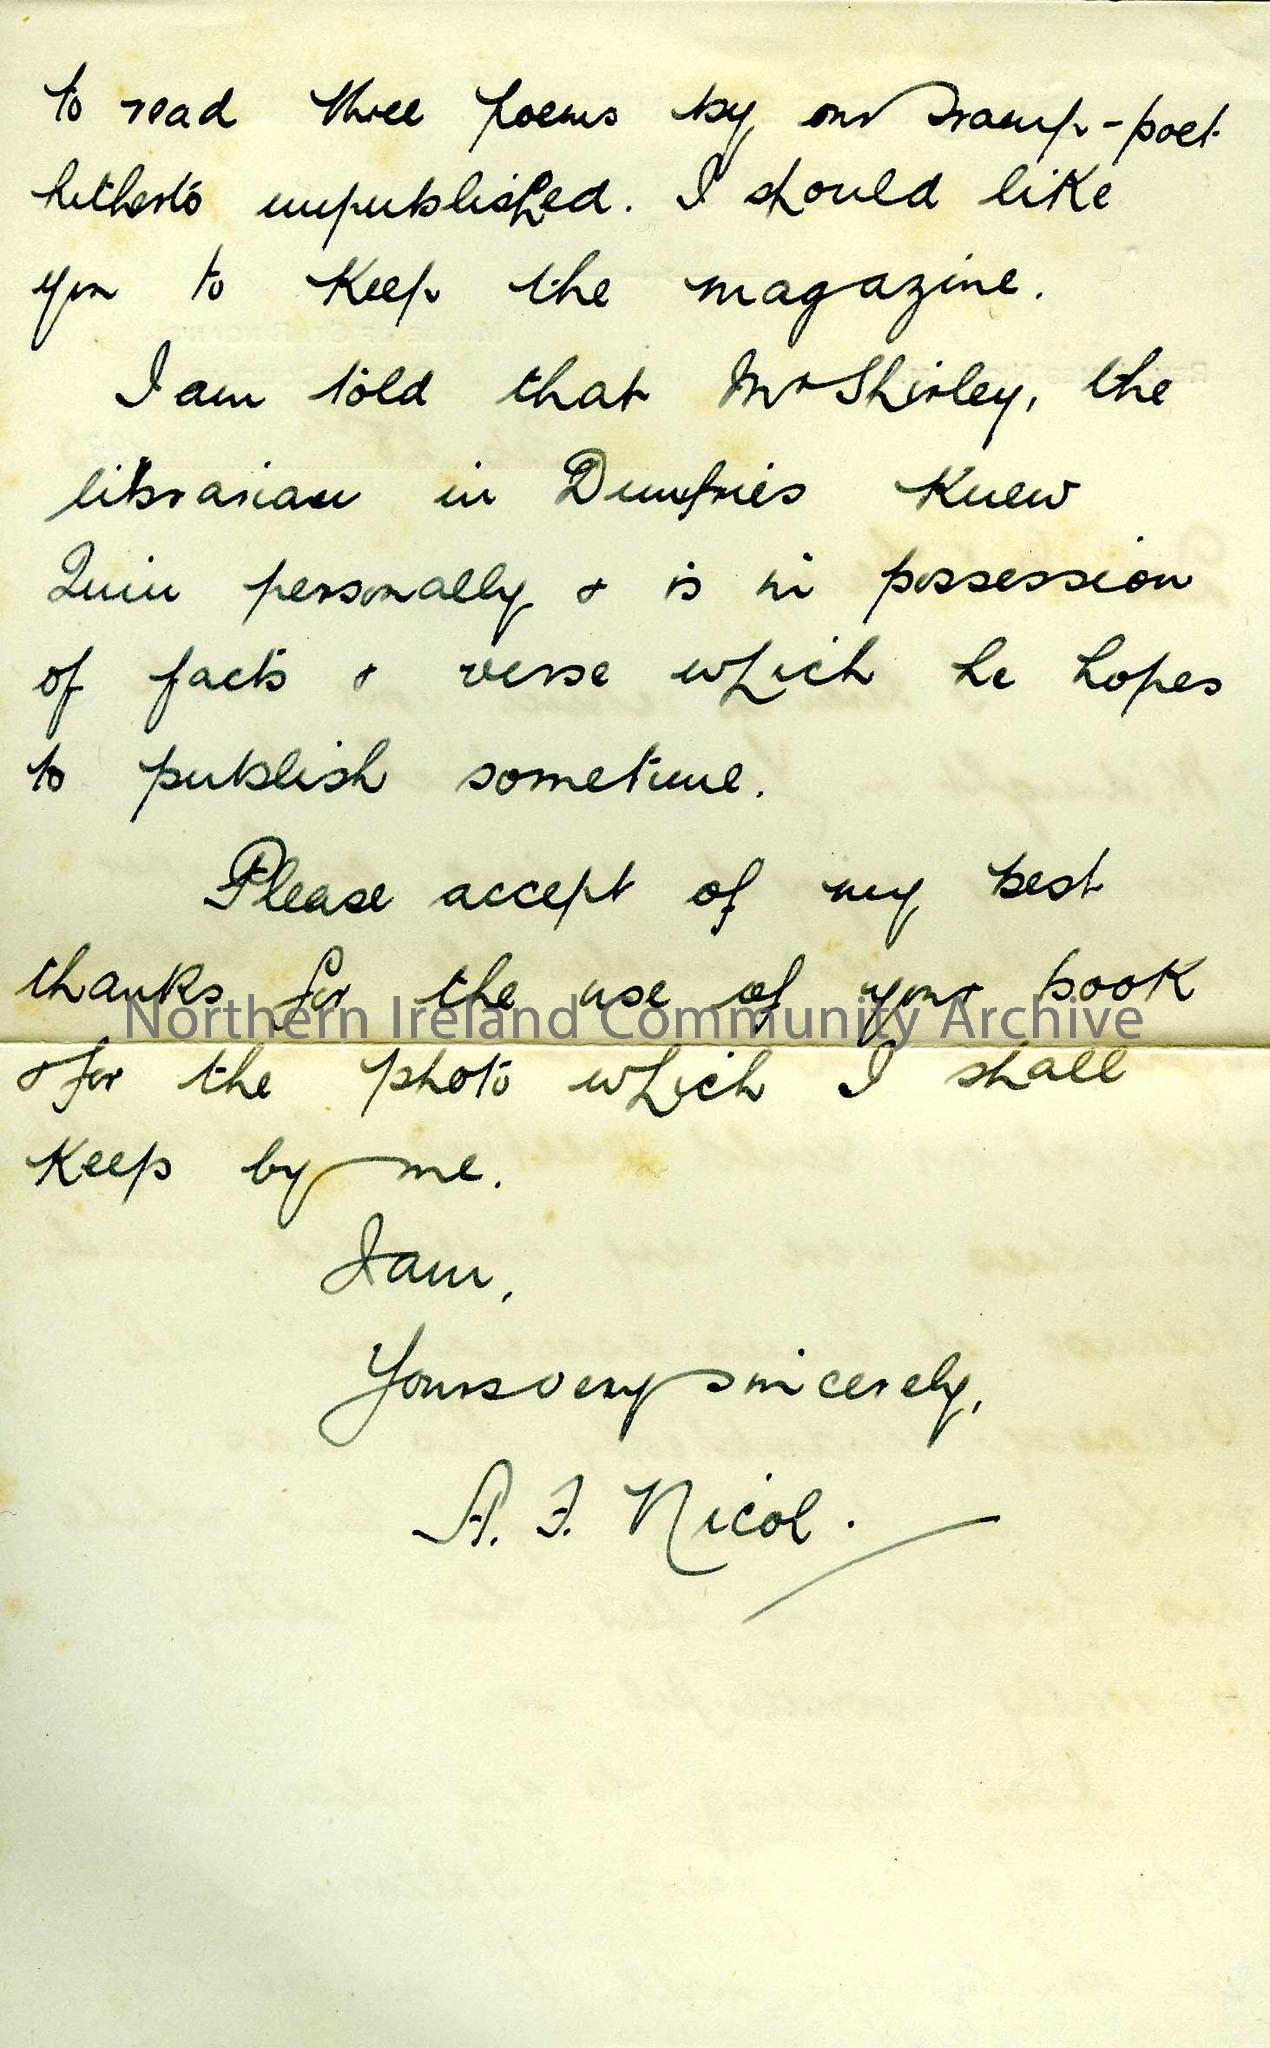 to read three poems by our tramp-poet
hitherto unpublished. I should like
you to keep the magazine.
I am told that Mr Shirley, the
librarian in Dumfries knew
Quin personally & is in possession
of facts & verse which he hopes
to publish sometime.
Please accept of my best
thanks for the use of your book
Northern Ireland Community Archive
& for the photo which I shall
keep by me.
I am,
Yours very sincerely,
A. F. Nicol.